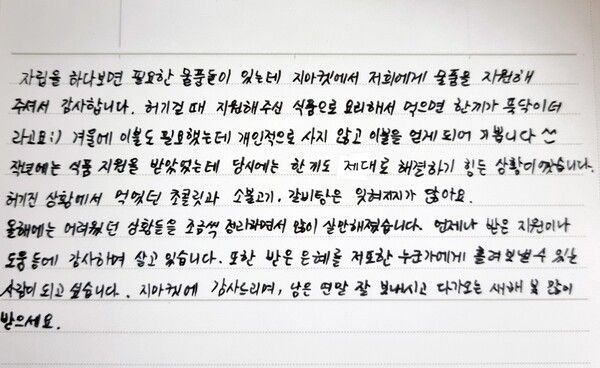 자립을 하다보면 필요한 물품들이 있는데 지마켓에서 저희에게 물품을 지원해
주셔서 감사합니다. 허기질 때 지원해주신 식품으로 요리해서 먹으면 한끼가 뚝딱이더
라고요:) 겨울에 이불도 필요했는데 개인적으로 사지 않고 이불을 얻게 되어 기쁩니다 ^^
작년에는 식품 지원을 받았었는데 당시에는 한끼도 제대로 해결하기 힘든 상황이였습니다.
허기진 상황에서 먹었던 초콜릿과 소불고기, 갈비탕은 잊혀지지가 않아요.
올해에는 어려웠던 상황들을 조금씩 정리하면서 많이 살만해졌습니다. 언제나 받은 지원이나
도움들에 감사하며 살고 있습니다. 또한 받은 은혜를 저또한 누군가에게 흘려보낼 수 있는
사람이 되고 싶습니다. 지마켓에 감사드리며, 남은 연말 잘 보내시고 다가오는 새해 복 많이
받으세요.